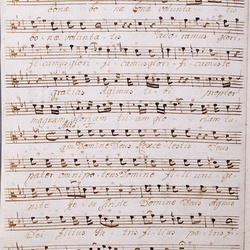 bona bona voluntatis
bona voluntatis adoramus glori
ficamus glorificamus te
gratias agimus tibi propter
magnam gloriam tuam gloriam tu
am Domine Deus Rex celestis Deus
pater omnipotens Domine fili uni ge
nite Jesu Christe Domine Deus agnus
Dei filius Patris filius patris